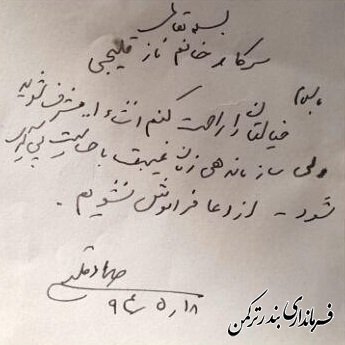 بسمه تعالی
سرکار خانم ناز قلیچی
با سلام
خیالتان را راحت کنم انشاء ا... مشرف نشوید
ولی سازماندهی زنان غیبت با جدیت پیگیری
شود - از دعا فراموش نشویم.
۹۴/۵/۱۸
فرمانداری بندر ترکمن